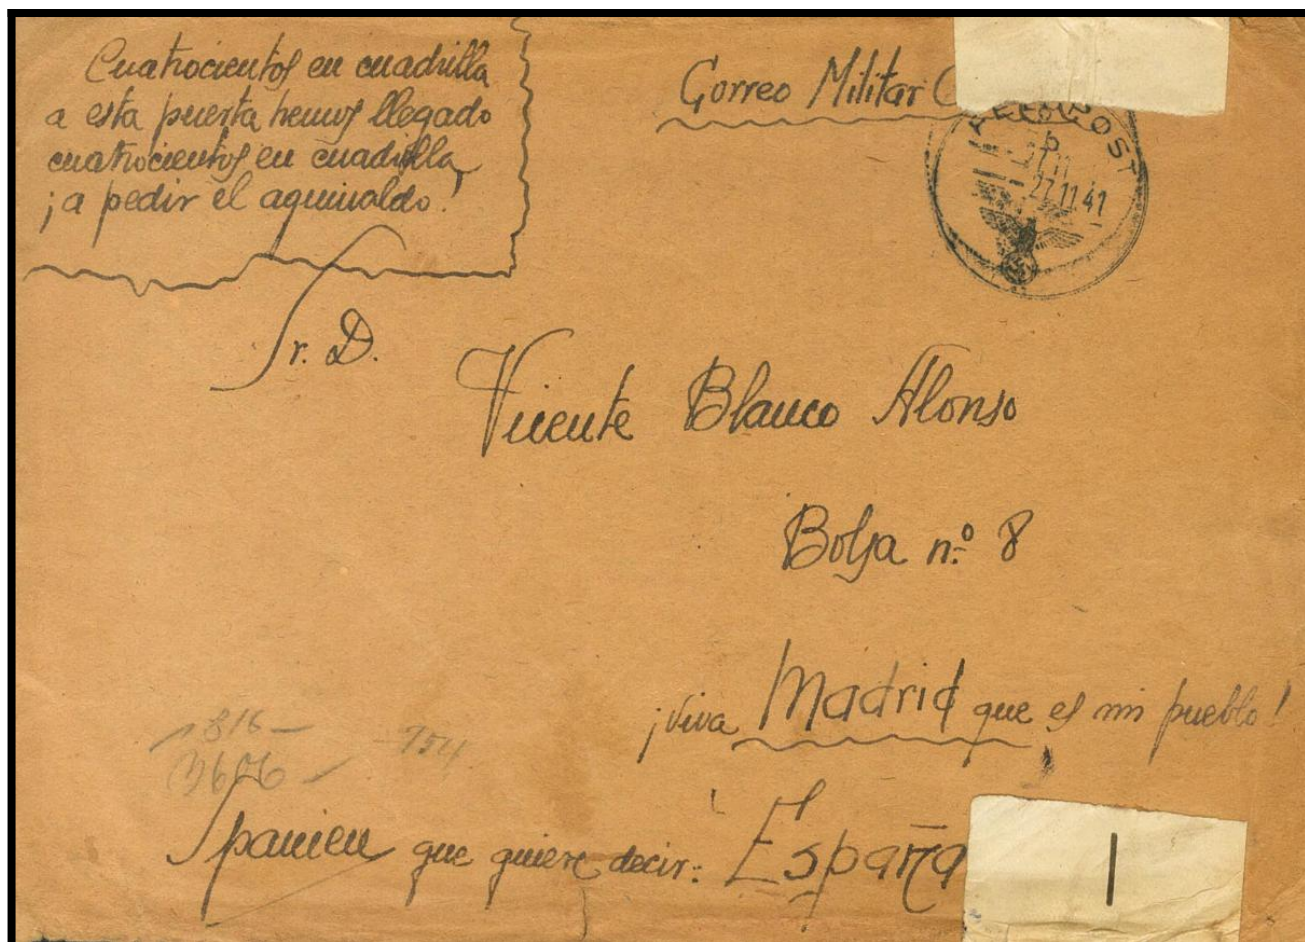 Cuatrocientos en cuadrilla
a esta puerta hemos llegado
cuatrocientos en cuadrilla
¡a pedir el aguinaldo!
Correo Militar
FELDPOST
b
27.11.41
Sr. D.
Vicente Blanco Alonso
Bolsa n.º 8
¡Viva Madrid que es mi pueblo!
816 –
754
Spanien que quiere decir: España